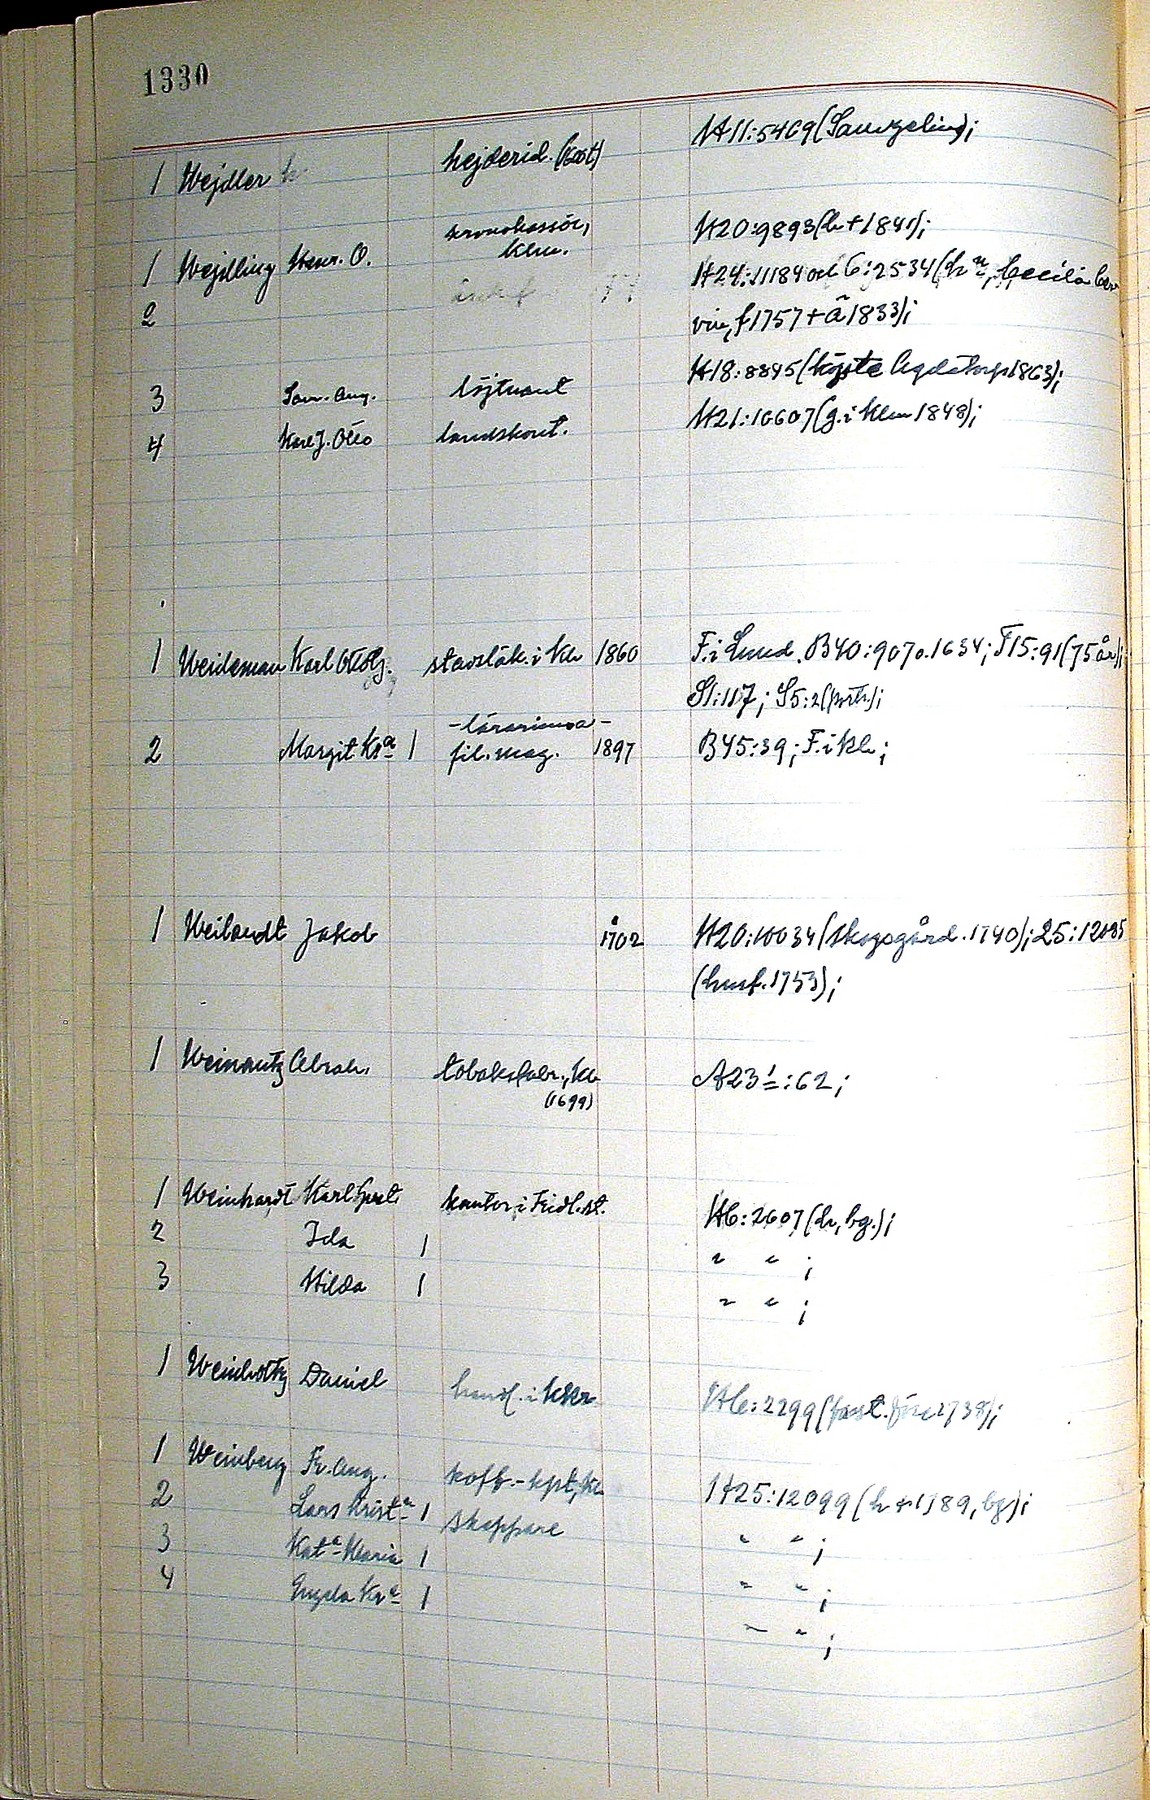 1330
1 Wejdler hejderid. H11:5469 (Sandzelius);
1 Wejdling Henr. O. kronokassör, H20:9893 (h + 1841);
2 H24:11184 och 6:2534 (hⁿ, Cecilia
f 1757 + å 1833);
3 Sam. Aug. löjtnant H18:8895 (köpte 1863);
4 Karl J. Otto landskont. H21:10607 (g. i Klm 1848);
1 Weideman Karl stadsläk. i Kh 1860 F. i Lund. B40:907 o. 1634; F15:91 (75 år);
S1:117; S5:2 (portr.);
-lärarinna-
2 Margit Kaª 1 fil. mag. 1897 B45:39; F. i Kh;
1 Weilandt Jakob 1702 H20:10034 (skogsgård. 1740); 25:12085
(husf. 1753);
1 Abrah. tobaksfabr., Kh A23:62;
(1699)
1 Weinhardt Karl Gust. kantor i Fridl.st. H6:2607 (h, bg.);
2 Ida 1 " " ;
3 Hilda 1 " " ;
1 Weinholtz Daniel handl. i Kkr H6:2299 (fast. 1738);
1 Weinberg Fr. Aug. koff.-kpt, Kh H25:12099 (h + 1789, bg);
2 Lars Kristⁿ 1 skeppare " " ;
3 Katª Maria 1 " " ;
4 Krª 1 " " ;